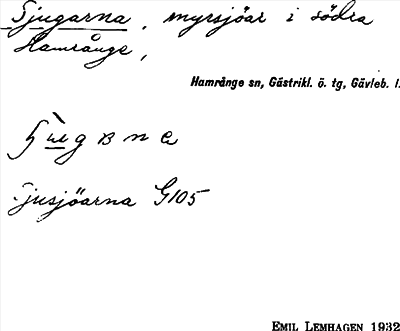 Sjugarna, myrsjöar i södra
Hamrånge,
Hamrånge sn, Gästrikl. ö. tg, Gävleb. l.
Sjusjöarna G105
EMIL LEMHAGEN 1932